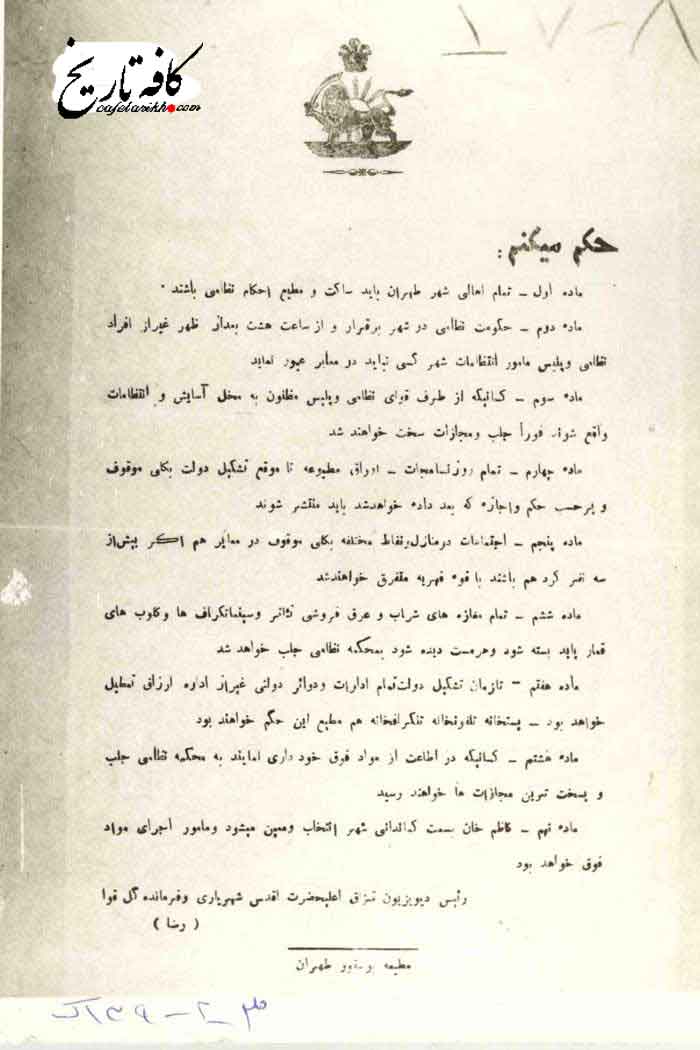 ۱-۷-۸
کافه تاریخ
cafetarikh.com
حکم میکنم :
ماده اول – تمام اهالی شهر طهران باید ساکت و مطیع احکام نظامی باشند ۰
ماده دوم – حکومت نظامی در شهر برقرار و از ساعت هشت بعداز ظهر غیراز افراد
نظامی وپلیس مامور انتظامات شهر کسی نباید در معابر عبور نماید
ماده سوم – کسانیکه از طرف قوای نظامی وپلیس مظنون به مخل آسایش و انتظامات
واقع شوند فوراً جلب ومجازات سخت خواهند شد
ماده چهارم – تمام روزنامجات – اوراق مطبوعه تا موقع تشکیل دولت بکلی موقوف
و برحسب حکم واجازه که بعد داده خواهدشد باید منتشر شوند
ماده پنجم – اجتماعات درمنازل ونقاط مختلفه بکلی موقوف در معابر هم اگر بیش از
سه نفر گرد هم باشند با قوه قهریه متفرق خواهندشد
ماده ششم – تمام مغازه های شراب و عرق فروشی تئاتر وسینماتگراف ها وکلوپ های
قمار باید بسته شود وهرمست دیده شود بمحکمه نظامی جلب خواهد شد
ماده هفتم – تازمان تشکیل دولت تمام ادارات ودوائر دولتی غیراز اداره ارزاق تعطیل
خواهد بود – پستخانه تلفونخانه تلگرافخانه هم مطیع این حکم خواهند بود
ماده هشتم – کسانیکه در اطاعت از مواد فوق خود داری نمایند به محکمه نظامی جلب
و بسخت ترین مجازات ها خواهند رسید
ماده نهم – کاظم خان بسمت کماندانی شهر انتخاب ومعین میشود ومامور اجرای مواد
فوق خواهد بود
رئیس دیویزیون قزاق اعلیحضرت اقدس شهریاری وفرمانده کل قوا
( رضا )
مطبعه بوسفور طهران